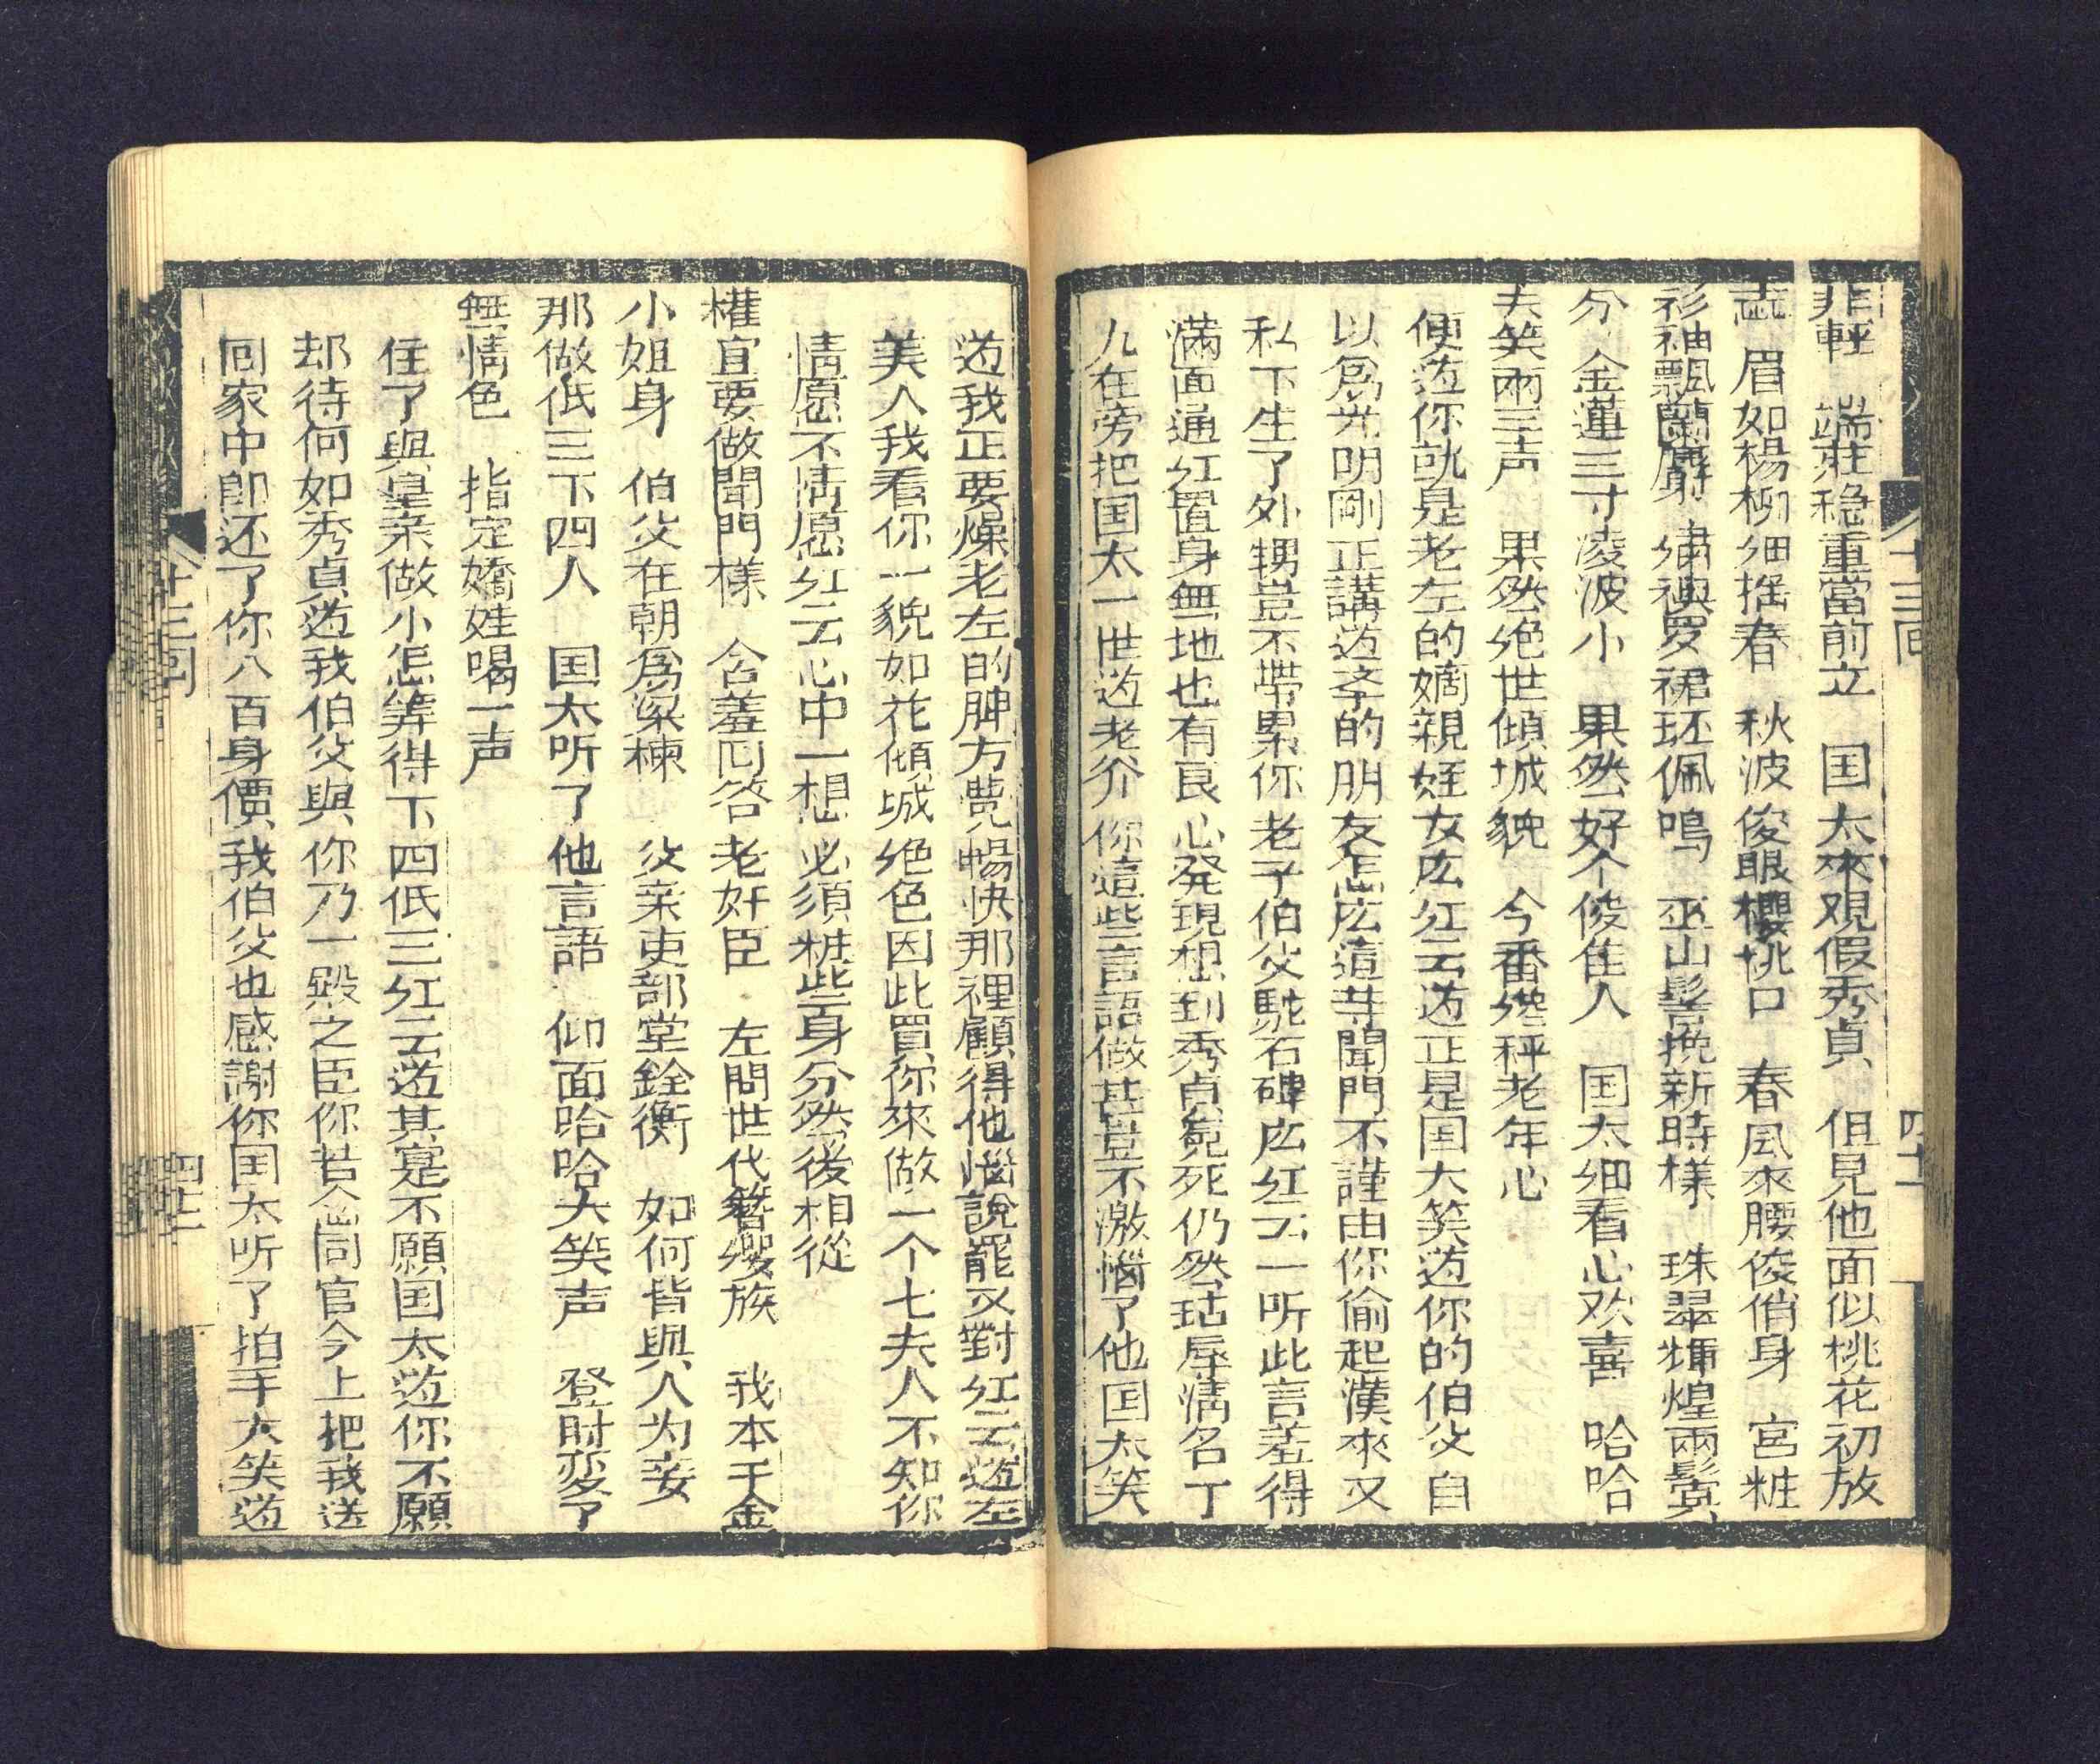 非輕　端莊穏重當前立　国太來观假秀貞　但見他面似桃花初放
誌　眉如楊柳细摇春　秋波俊眼櫻桃口　春風來腰俊俏身　宮粧
衫袖飄蘭麝　繡襖罗裙环佩鳴　巫山髻挽新時樣　珠翠煒煌兩鬓
分　金蓮三寸凌波小　果然好个俊佳人　国太细看心欢喜　哈哈
大笑兩三声　果然绝世傾城貌　今番纔秤老年心
便道你就是老左的嫡親姪女庅红云道正是国大笑道你的伯父自
以爲光明剛正講道斈的朋友怎庅這等閨門不謹由你偷起漢來又
私下生了外甥豈不帶累你老子伯父駝石碑庅红云一听此言羞得
滿面通红置身無地也有良心発現想到秀貞冤死仍然玷辱清名丁
九在旁把国太一世道老爷你這些言語做甚豈不激惱了他国太笑
道我正要燥老左的脾方覺暢快那裡顧得他惱說罷又對红云道左
美人我看你一貌如花傾城绝色因此買你來做一个七夫人不知你
情愿不情愿红云心中一想必須粧些身分然後相從
權宜要做閨門樣　含羞回答老奸臣　左門世代簪缨族　我本千金
小姐身　伯父在朝爲梁棟　父亲吏部堂銓衡　如何肯與人为妾
那做低三下四人　国太听了他言語　仰面哈哈大笑声　登時変了
無情色　指定嬌姓喝一声
住了與皇亲做小怎筭得下四低三红云道其寔不願国太道你不願
却待何如秀貞道我伯父與你乃一殿之臣你若念同官今上把我送
回家中即还了你八百身價我伯父也感謝你国太听了拍手大笑道
十三回
四十一
十三回